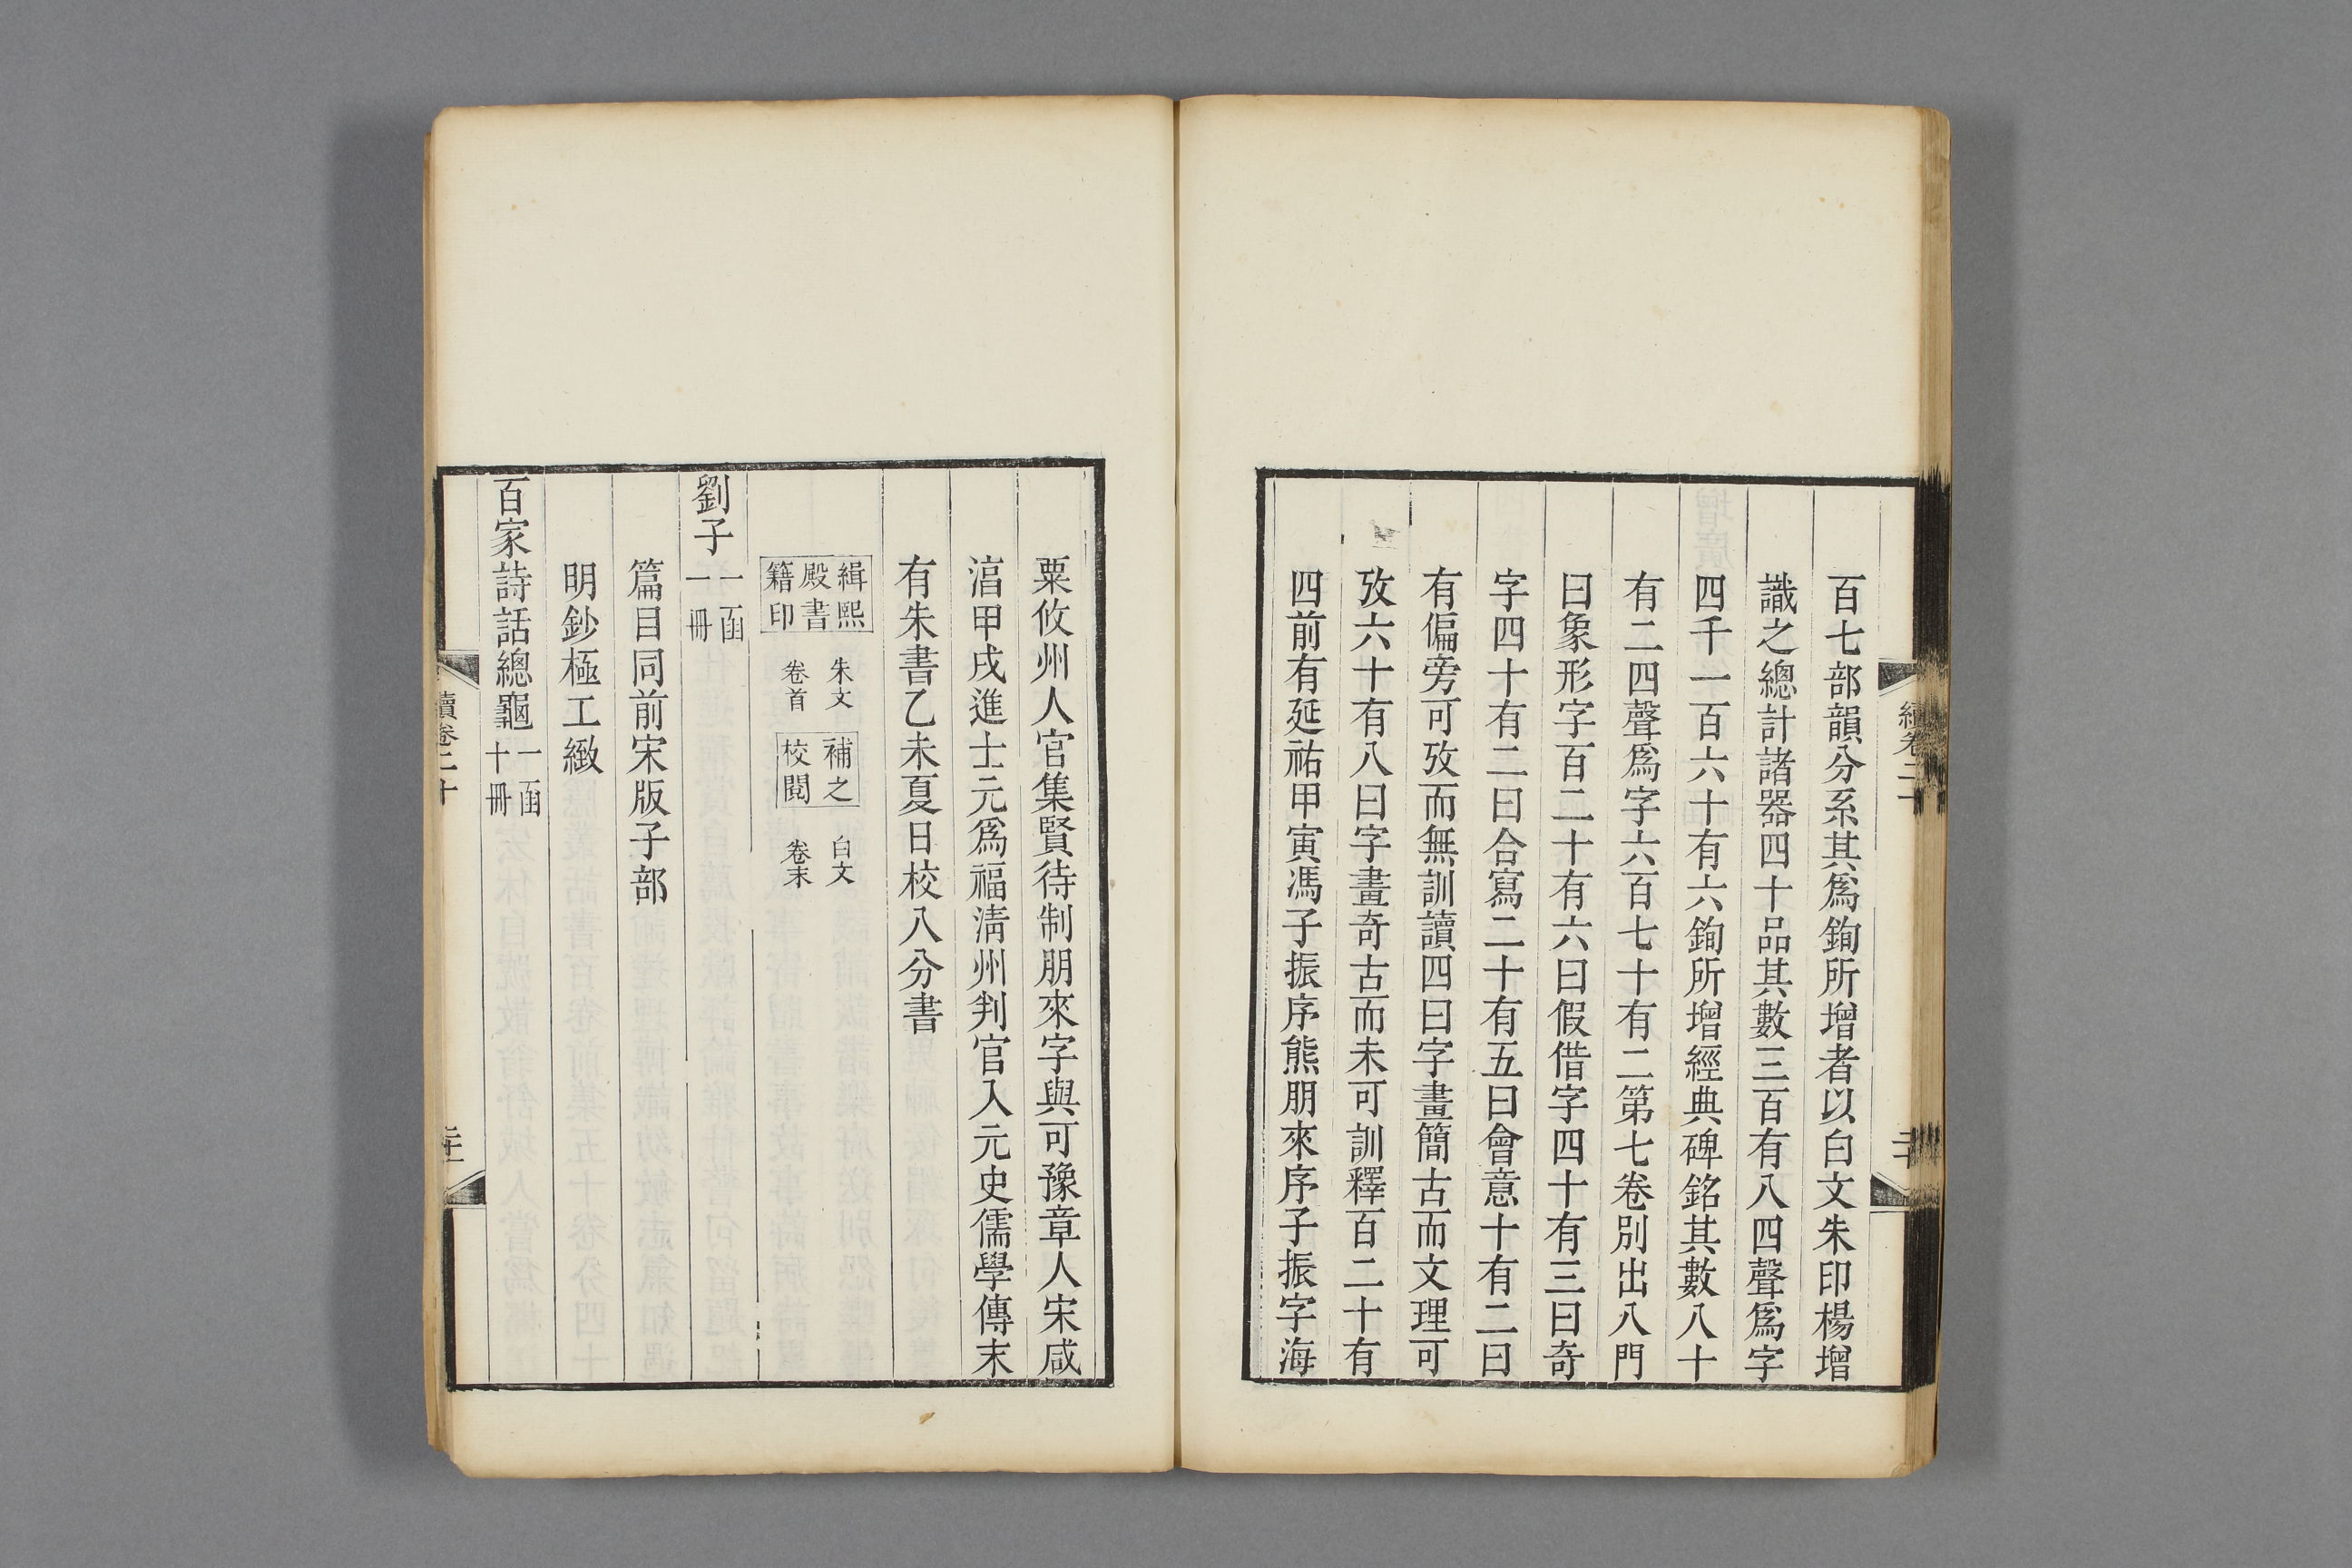 百七部韻分系其爲鉤所增者以白文朱印楊增
識之總計諸器四十品其數三百有八四聲爲字
四千一百六十有六鉤所增經典碑銘其數八十
有二四聲爲字六百七十有二第七卷別出八門
曰象形字百二十有六曰假借字四十有三曰奇
字四十有二曰合寫二十有五曰會意十有二曰
有偏旁可攷而無訓讀四曰字畫簡古而文理可
攷六十有八曰字畫奇古而未可訓釋百二十有
四前有延祐甲寅馮子振序熊朋來序子振字海
粟攸州人官集賢待制朋來字與可豫章人宋咸
淳甲戌進士元爲福淸州判官入元史儒學傳末
有朱書乙未夏日校八分書
緝熙殿書籍印
朱文
卷首
補之校閱
白文
卷末
劉子
一函
一冊
篇目同前宋版子部
明鈔極工緻
百家詩話總龜
一函
十冊
續卷二十